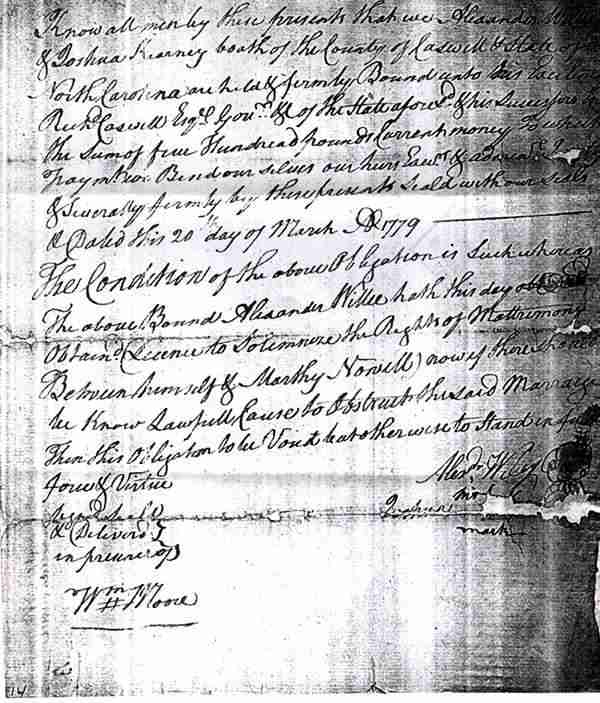 Know all men by these presents that we Alexander Willie
& Joshua Kearney boath of the County of Caswell & State of
North Carolina are held & firmly Bound unto his Excellen
Richd Caswell Esqr Govr &c of the State aforesd & his Successors
the Sum of five Hundread pounds Current money To which
paymt we Bind our selves our heirs Exers & adminrs
& Severally firmly by these presents Seald with our Seals
& Dated this 20th day of March AD 1779
The Condition of the above Obligation is Such whereas
The above Bound Alexander Willie hath this day
Obtaind Licence to Solemnize the Rights of Mattrimony
Between himself & Marthy Nowell) now if there
be Know Lawfull Cause to Obstruct the said Marriage
Then this Obligation to be Void but other wise to Stand in full
force & Virtue
Alexdr Wiley
Signd Seald
& Deliverd
mark
in presence of
Wm Moore
14